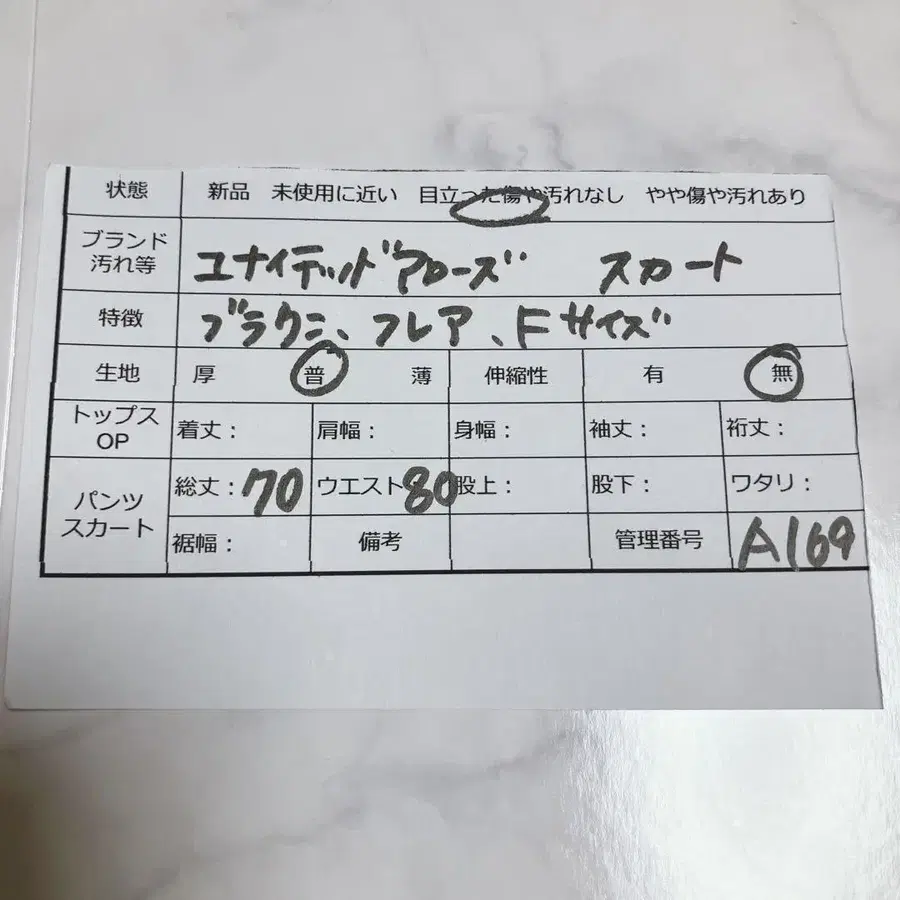 状態 新品 未使用に近い 目立った傷や汚れなし やや傷や汚れあり
ブランド 汚れ等 ユナイテッドアローズ スカート
特徴 ブラウン、フレア、Fサイズ
生地 厚 普 薄 伸縮性 有 無
トップス OP 着丈： 肩幅： 身幅： 袖丈： 裄丈：
パンツ スカート 総丈：70 ウエスト80 股上： 股下： ワタリ：
裾幅： 備考 管理番号 A169